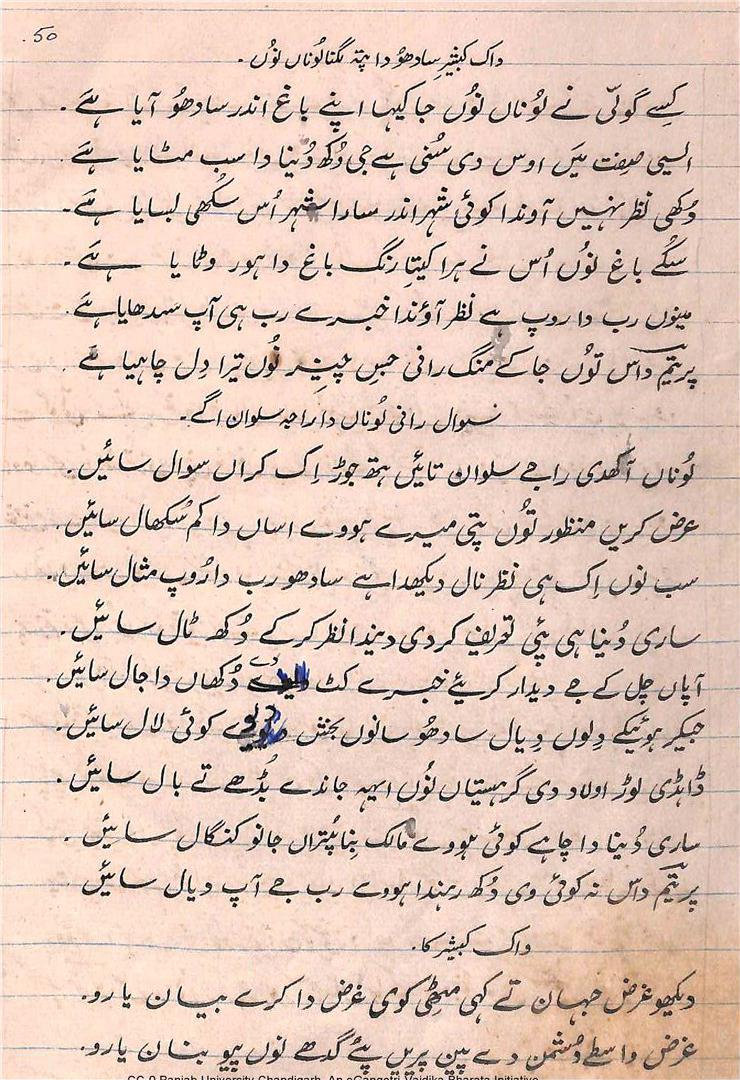 50
واک کبیشر سادھو دا پتہ لگنا لُوناں نوُں۔
کِسے گولّی نے لوُناں نوُں جا کیہا اپنے باغ اندر سادھوُ آیا ہَے۔
ایسی صِفت مَیں اوس دی سُنی ہے جی دُکھ دُنیا دا سب مٹایا ہَے
دُکھی نظر نہیں آوندا کوئی شہر اندر سارا شہر اُس سُکھی بسایا ہَے۔
سُکے باغ نوُں اُس نے ہرا کیتا رنگ باغ دا ہور وٹایا ہَے۔
مینوں رب دا روپ ہے نظر آؤندا خبرے رب ہی آپ سدھایا ہَے۔
پریتم داس توُں جا کے منگ رانی جس چیز نوُں تیرا دِل چاہیا ہے
سوال رانی لُوناں دا راجہ سلوان اگے۔
لُوناں آکھدی راجے سلوان تائیں ہتھ جوڑ اِک کراں سوال سائیں۔
عرض کریں منظور توُں پتی میرے ہووے اساں دا کم سُکھال سائیں۔
سب نوں اِک ہی نظر نال دیکھدا ہے سادھو رب دا رُوپ مثال سائیں۔
ساری دُنیا ہی پئی تعریف کردی دیندا نظر کر کے دُکھ ٹال سائیں۔
آپاں چل کے جے دیدار کریئے خبرے کٹ دیوے دُکھاں دا جال سائیں۔
جیکر ہوئیکے دِلوں دِیال سادھوُ سانوں بخش دیوے کوئی لال سائیں۔
ڈاہڈی لوڑ اولاد دی گرہستیاں نوُں ایہہ جاندے بُڈھے تے بال سائیں۔
ساری دُنیا دا چاہے کوئی ہووے مالک بِنا پُتراں جانو کنگال سائیں۔
پریتم داس نہ کوئی وی دُکھ رہندا ہووے رب جے آپ دیال سائیں
واک کبیشر کا۔
دیکھو غرض جہان تے کہی مِٹھی کوی غرض دا کرے بیان یارو۔
غرض واسطے دُشمن دے پین پریں پئے گدھے نوں پیو بنان یارو۔
CC-0 Panjab University Chandigarh. An eGangotri-Vaidika Bharata Initiative